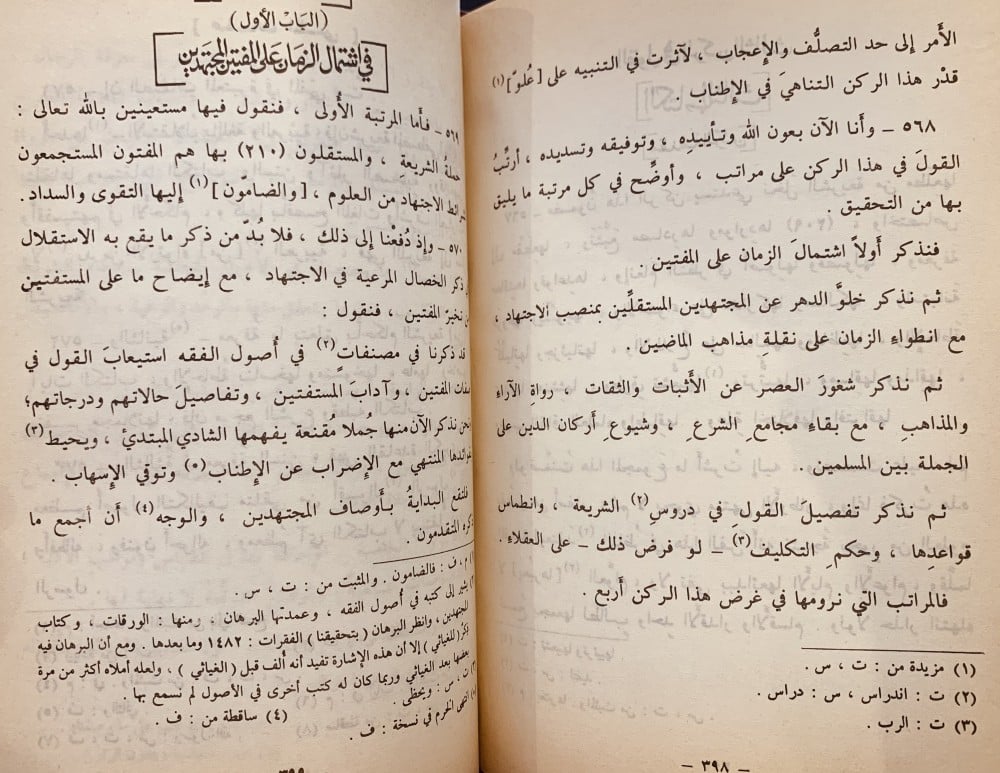 الأَمر إلى حد التصلُّف والإِعجاب ، لآثرت في التنبيه على [عُلوّ] (١)
قدْر هذا الركن التناهيَ في الإِطناب .
٥٦٨ – وأَنا الآن بعون الله وتأْييدِه ، وتوفيقه وتسديده ، أرتِّبُ
القولَ في هذا الركن على مراتب ، وأوضِّح في كل مرتبة ما يليق
بها من التحقيق .
فنذكر أَولاً اشتمالَ الزمان على المفتين .
ثم نذكر خلوَّ الدهر عن المجتهدين المستقلِّين بمنصب الاجتهاد ،
مع انطواءِ الزمان على نقلةِ مذاهب الماضين .
ثم نذكر شغورَ العصر عن الأَثبات والثقات ، رواةِ الآراءِ
والمذاهبِ ، مع بقاءِ مجامعِ الشرعِ ، وشيوعِ أَركان الدين على
الجملة بين المسلمين
ثم نذكر تفصيلَ القولِ في دروسِ (٢) الشريعة ، وانطماس
قواعدِها ، وحكمِ التكليفِ (٣) – لو فرض ذلك – على العقلاءِ .
فالمراتب التي نرومها في غرض هذا الركن أَربع .
(١) مزيدة من : ت ، س .
(٢) ت : اندراس ، س : دراس .
(٣) ت : الرب .
– ٣٩٨ –
(البَابُ الأَول)
في اشتمال الزمان على المفتين المجتهدين
٥٦٩ – فأَما المرتبة الأُولى ، فنقول فيها مستعينين بالله تعالى :
حملةُ الشريعةِ ، والمستقلون (٢١٠) بها هم المفتون المستجمعون
لشرائط الاجتهاد من العلوم ، [والضامّون] (١) إليها التقوى والسداد .
٥٧٠ – وإِذ دُفعْنا إلى ذلك ، فلا بُدَّ من ذكر ما يقع به الاستقلال
ذكر الخصال المرعية في الاجتهاد ، مع إيضاح ما على المستفتين
تخيّر المفتين ، فنقول :
قد ذكرنا في مصنفاتٍ (٢) في أُصول الفقه استيعابَ القول في
صفات المفتين ، وآدابَ المستفتين ، وتفاصيلَ حالاتهم ودرجاتهم؛
ونحن نذكر الآن منها جُملا مُقنعة يفهمها الشادي المبتدئ ، ويحيط (٣)
بفوائدها المنتهي مع الإِضراب عن الإِطناب (٥) وتوقي الإِسهاب .
فلتقع البدايةُ بأَوصاف المجتهدين ، والوجه (٤) أَن أَجمع ما
ذكره المتقدمون .
م ، ف : فالضامون . والمثبت من : ت ، س .
يشير إلى كتبه في أُصول الفقه ، وعمدتها البرهان ، ومنها : الورقات ، وكتاب
المجتهدين، وانظر البرهان (بتحقيقنا) الفقرات : ١٤٨٢ وما بعدها . ومع أن البرهان فيه
ذكرٌ (للغياثي) إلا أن هذه الإشارة تفيد أنه أُلف قبل (الغياثي) ، ولعله أملاه أكثر من مرة
بعضها بعد الغياثي وربما كان له كتب أخرى في الأصول لم نسمع بها .
ت ، س : ويحظى . (٤) ساقطة من : ف .
انتهى الخرم في نسخة : ف .